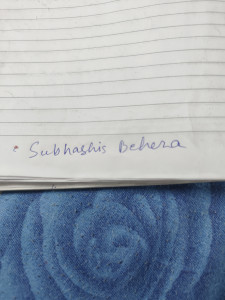 • Subhashis Behera